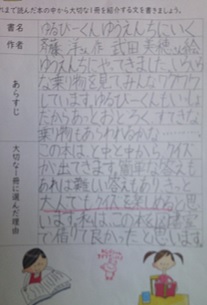 まで読んだ本の中から大切な1冊を紹介する文を書きましょう。
書名
ゆるびーくんゆうえんちにいく
作者
斉藤洋 作 武田美穂 絵
あらすじ
ゆうえんちにやってきました。いろいろ
な乗り物を見てみんなワクワク
しています。ゆるびーくんも
だからあっとおどろくすてきな
乗り物もあらわれるかな
大切な1冊に選んだ理由
この本は、と中と中から、クイズ
が出てきます。簡単な答えも
あれば難しい答えもありまし
大人でもクイズを楽しめると思
います。私は、この本を図書
で借りて良かったと思います。